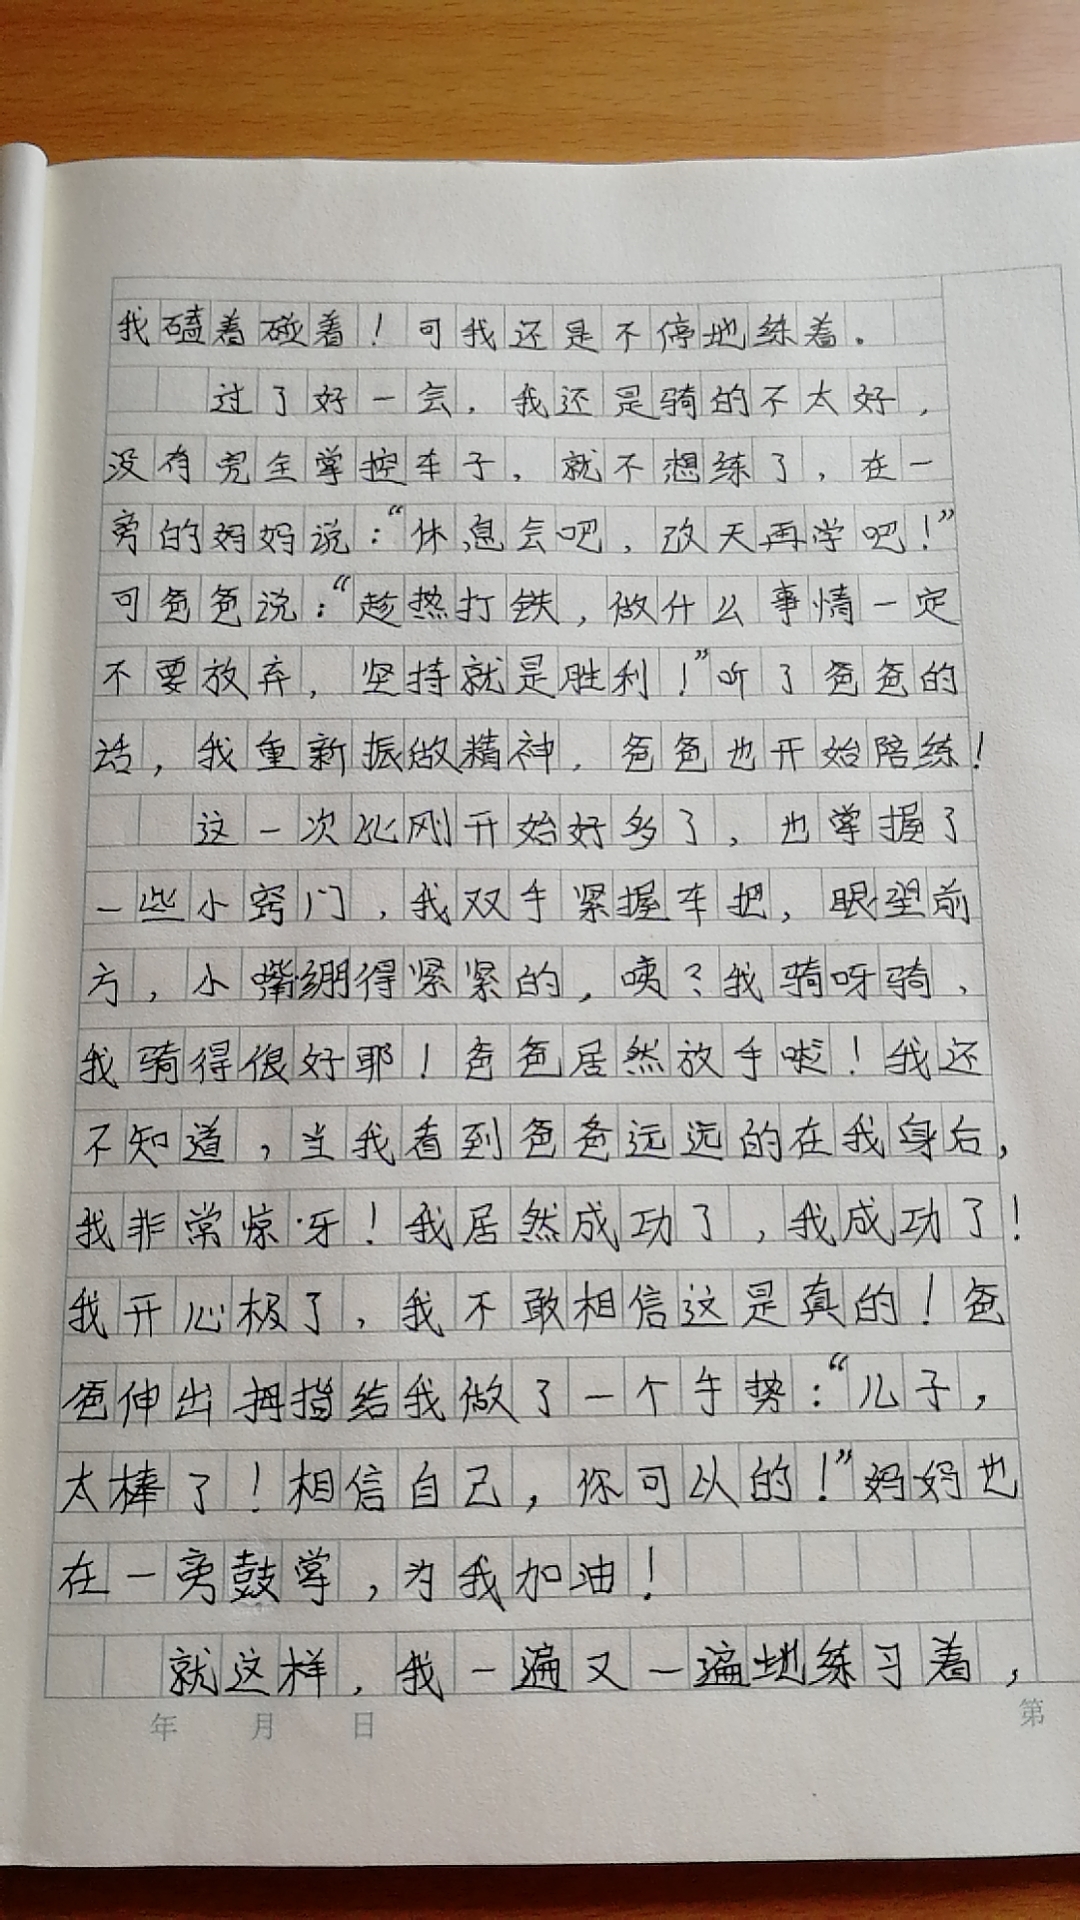 我磕着碰着！可我还是不停地练着。
过了好一会，我还是骑的不太好，
没有完全掌控车子，就不想练了，在一
旁的妈妈说：“休息会吧，改天再学吧！”
可爸爸说：“趁热打铁，做什么事情一定
不要放弃，坚持就是胜利！”听了爸爸的
话，我重新振做精神，爸爸也开始陪练！
这一次比刚开始好多了，也掌握了
一些小窍门，我双手紧握车把，眼望前
方，小嘴绷得紧紧的，咦？我骑呀骑，
我骑得很好耶！爸爸居然放手啦！我还
不知道，当我看到爸爸远远的在我身后，
我非常惊牙！我居然成功了，我成功了！
我开心极了，我不敢相信这是真的！爸
爸伸出拇指给我做了一个手势：“儿子，
太棒了！相信自己，你可以的！”妈妈也
在一旁鼓掌，为我加油！
就这样，我一遍又一遍地练习着，
年 月 日 第